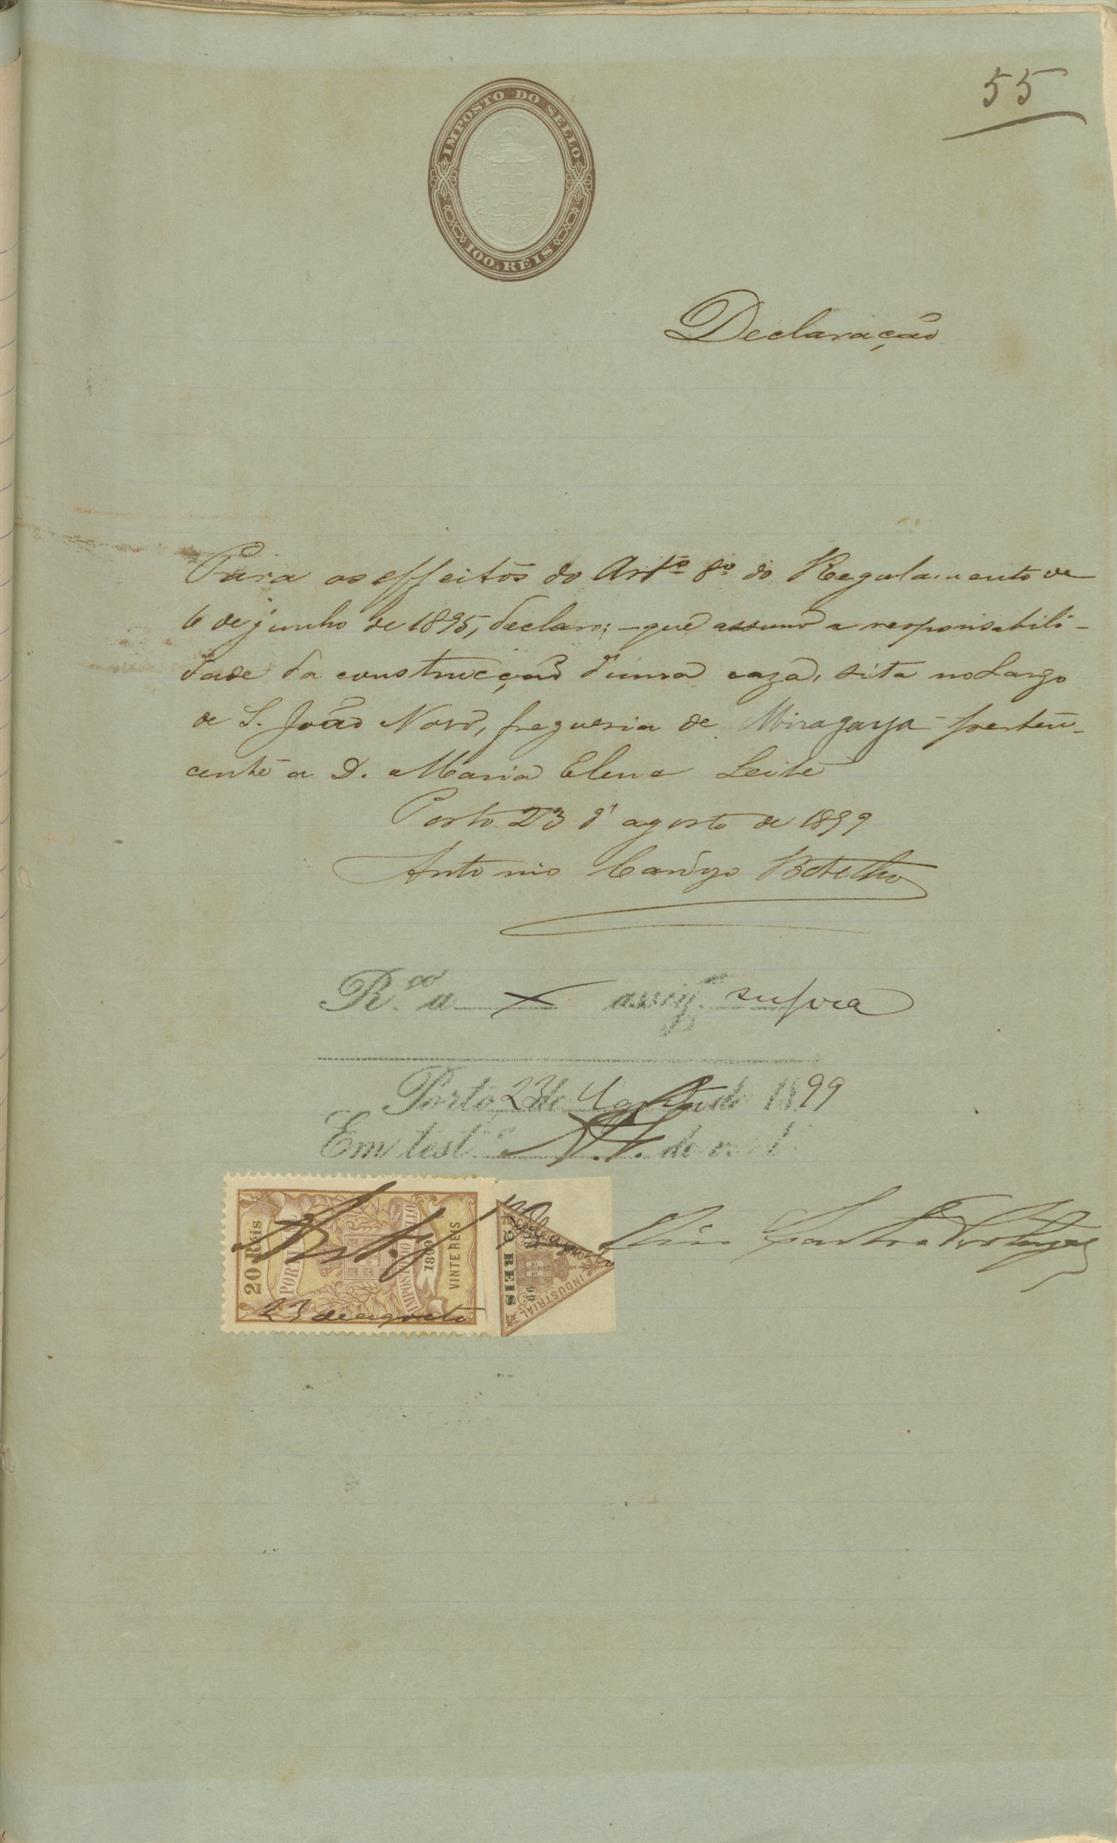 55
IMPOSTO DO SELLO
100. REIS
Declaração
Para os effeitos do Artº 8º do Regulamento de
6 de junho de 1895, declaro; - que assumo a responsabili-
dade da construcção d'uma caza, sita no Largo
de S. João Novo, freguesia de Miragaya perten-
cente a D. Maria Elena Leite
Porto 23 d'agosto de 1899
Antonio Botelho
R.co a assig. supra
Porto, 23 de Agosto de 1899
Em test.º de
20 REIS
PORTUGAL
IMPOSTO DO
1899
VINTE REIS
23 de agosto
INDUSTRIAL
2 REIS
99